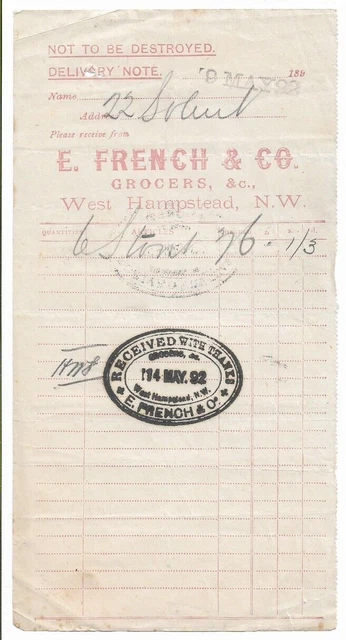 NOT TO BE DESTROYED.
DELIVERY NOTE. 9 MAY.92 189
Name
Add 22 Solent
Please receive from
E. FRENCH & CO.
GROCERS, &c.,
West Hampstead, N.W.
QUANTITIES ARTICLES
6 Stout 2/6 . 1/3
RECEIVED WITH THANKS
GROCERS, &c.
14 MAY.92
West Hampstead, N.W.
E. FRENCH & Co